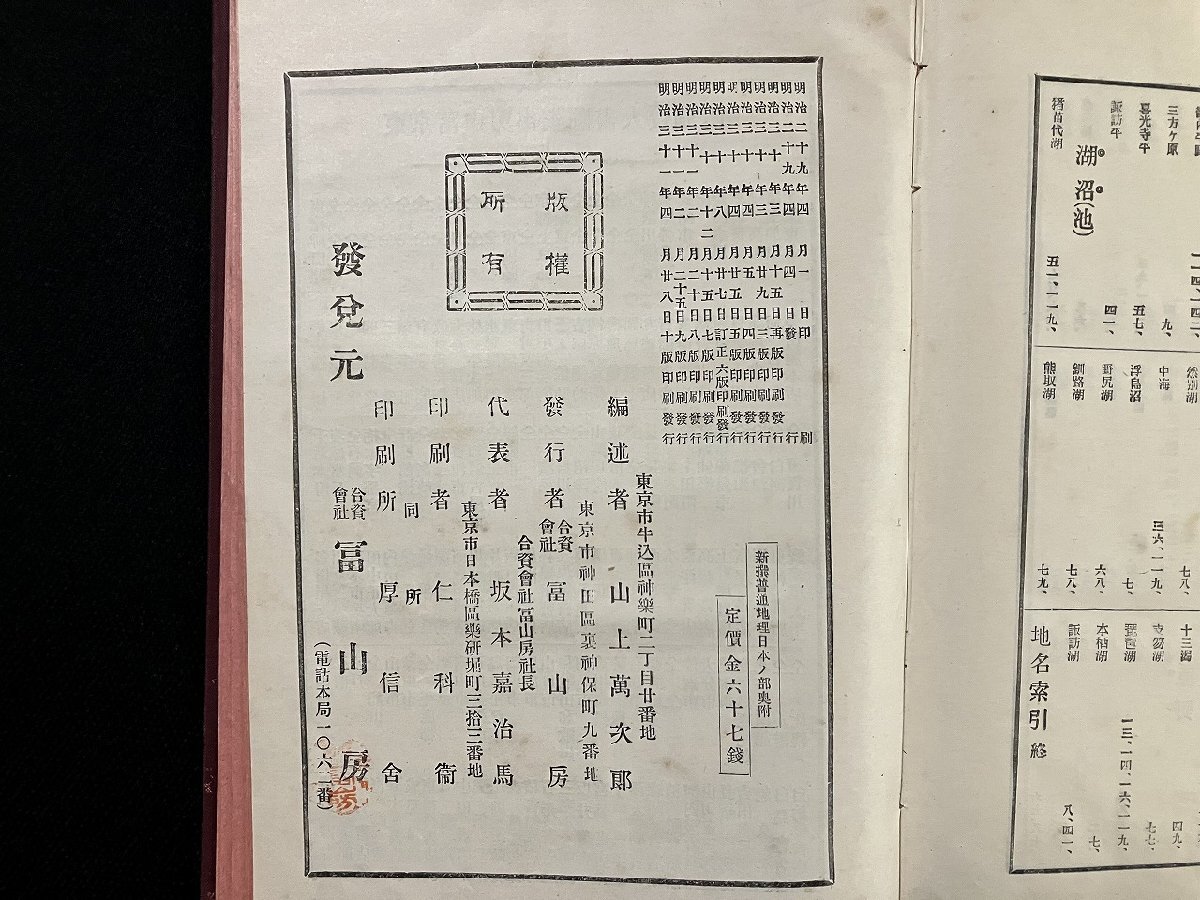 猪苗代湖
諏訪平
喜光寺平
三方ヶ原
湖沼(池)
五一、一一九、
四一、
五七、
九、
然別湖
中海
浮島沼
哥尻湖
釧路湖
熊取湖
七八、
三六、一一九、
七、
六八、
七八、
七九、
十三潟
支笏湖
琵琶湖
本栖湖
諏訪湖
四九、
七七、
一三、一四、一六、一一九、
七、
八、四一、
地名索引 終
明治二十九年四月一日印刷
明治二十九年四月四日發行
明治三十年三月十五日再版印刷發行
明治三十年三月廿九日三版印刷發行
明治三十年四月五日四版印刷發行
明治三十年四月廿五日五版印刷發行
明治三十年八月廿七日訂正六版印刷發行
明治三十年十二月十五日七版印刷發行
明治三十一年二月二十日八版印刷發行
明治三十一年二月二十五日九版印刷發行
明治三十一年四月廿八日十版印刷發行
版權
所有
新撰普通地理日本ノ部奥附
定價金六十七錢
東京市牛込區神樂町二丁目廿番地
編述者 山上萬次郎
東京市神田區裏神保町九番地
發行者 合資會社 冨山房
合資會社冨山房社長
代表者 坂本嘉治馬
東京市日本橋區藥研堀町三拾三番地
印刷者 仁科衞
同所
印刷所 厚信舍
發兌元 合資會社 冨山房
(電話本局一〇六二番)